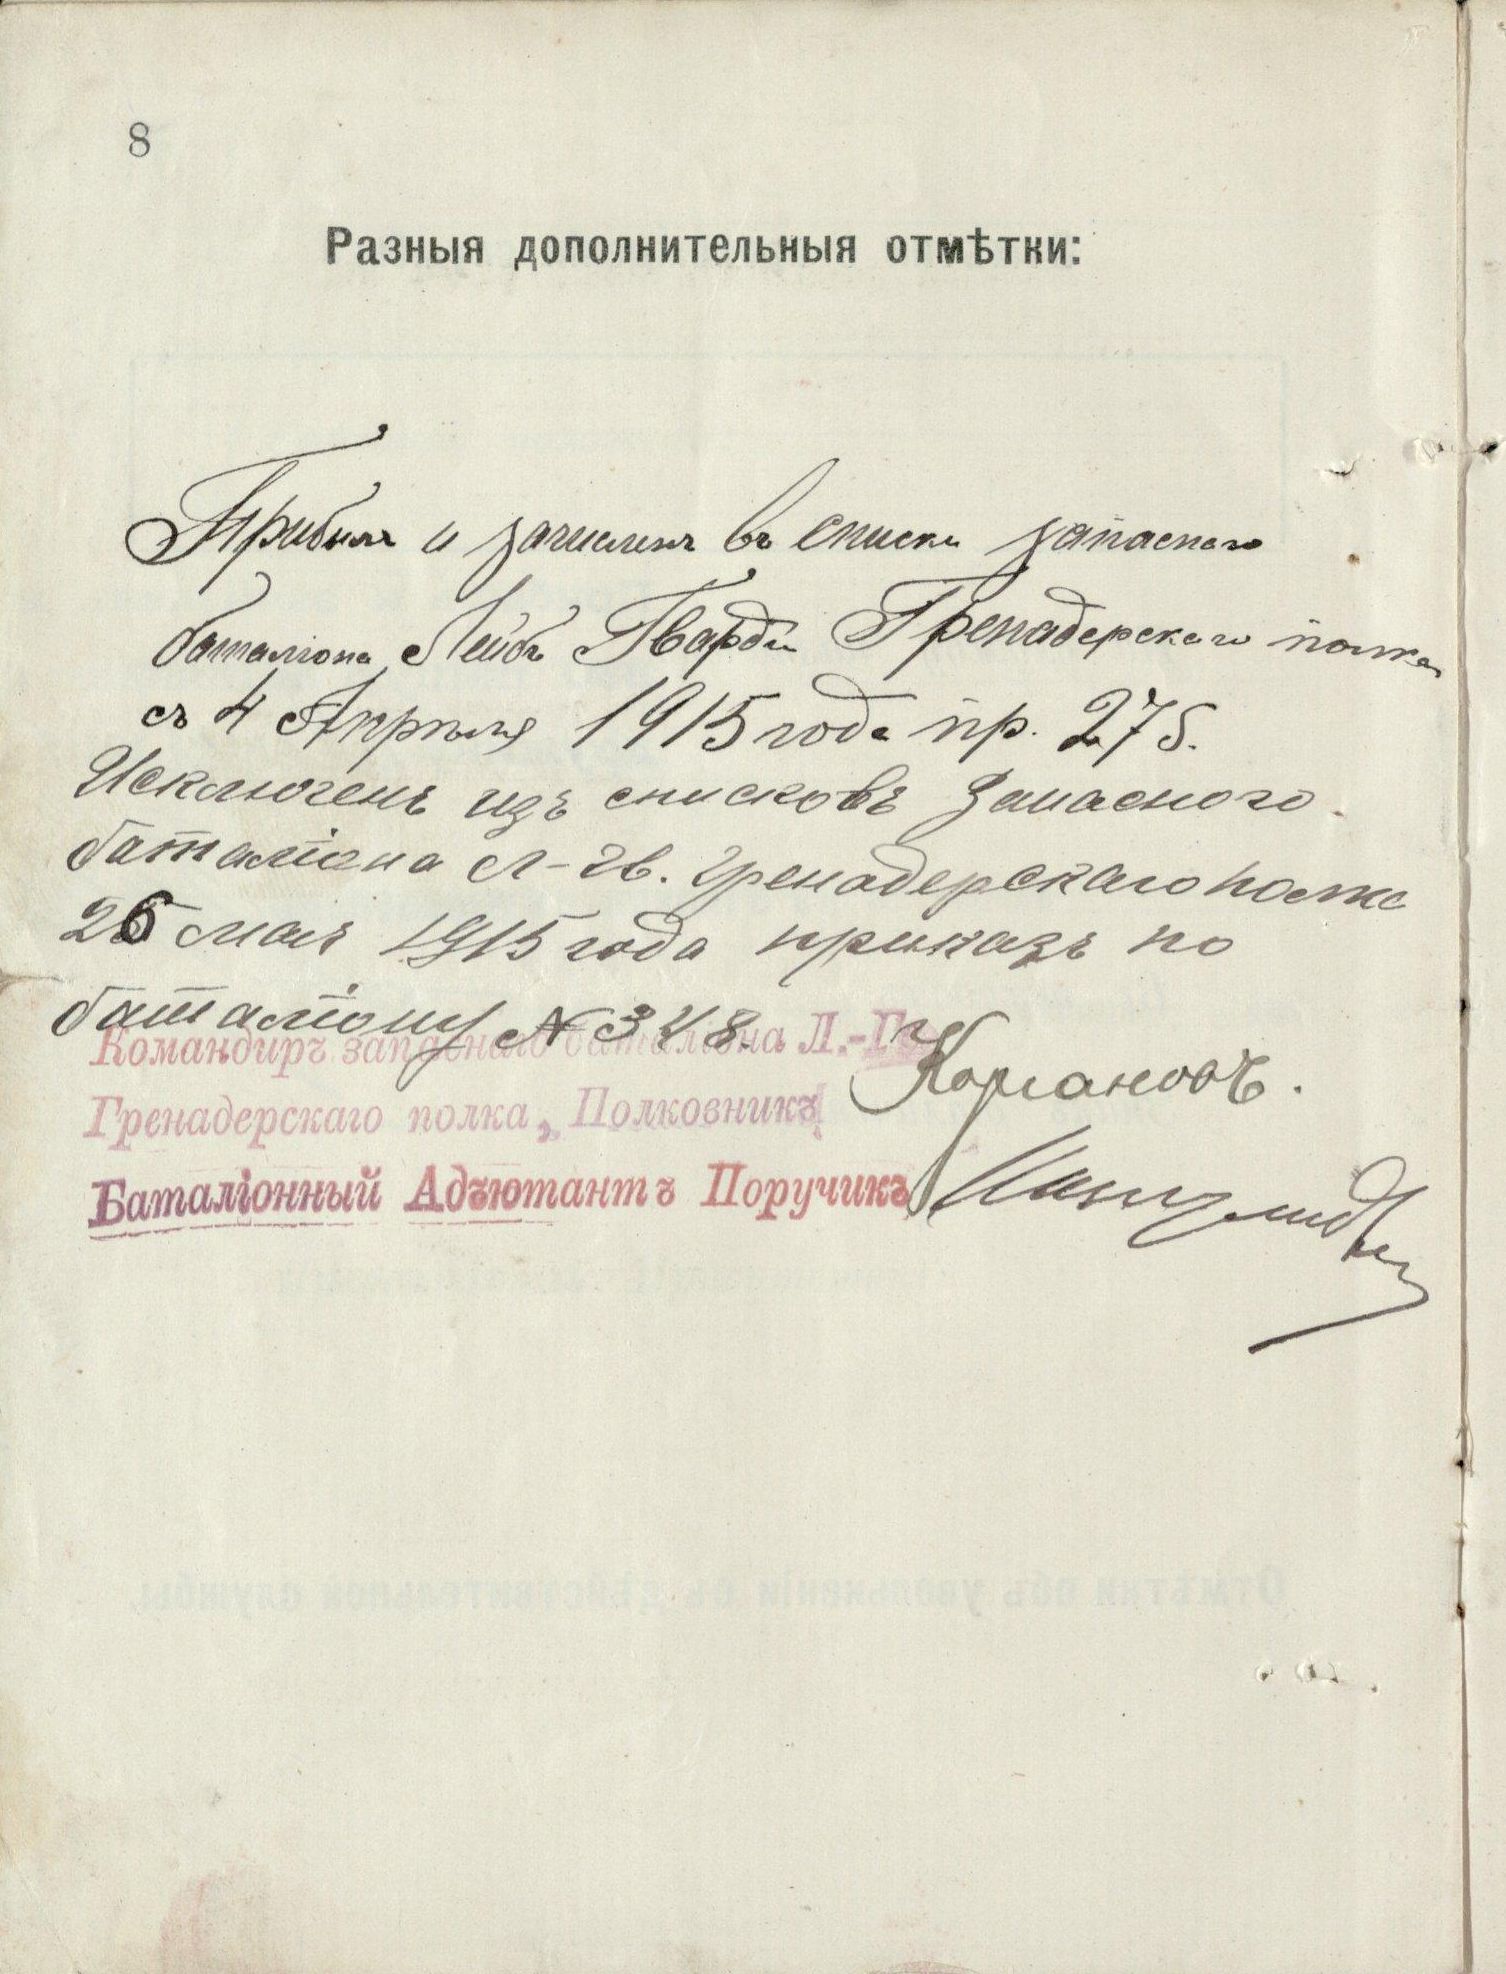 8
Разныя дополнительныя отмѣтки:
Прибылъ и зачисленъ въ списки запаснаго
баталіона Лейбъ Гвардіи Гренадерскаго полка
съ 4 Апрѣля 1915 года пр. 275.
Исключенъ изъ списковъ Запасного
баталіона Л-гв. Гренадерскаго полка
26 мая 1915 года приказъ по
баталіону № 348.
Командиръ запаснаго баталіона Л.-Гв.
Гренадерскаго полка, Полковникъ
Баталіонный Адъютантъ Поручикъ